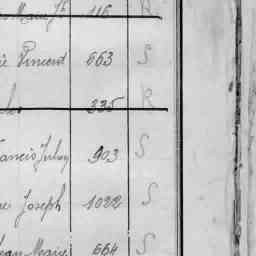 Marie Jh 116 R
Vincent 663 S
335 R
Francis Juley 903 S
Joseph 1022 S
Jean-Marie 664 S